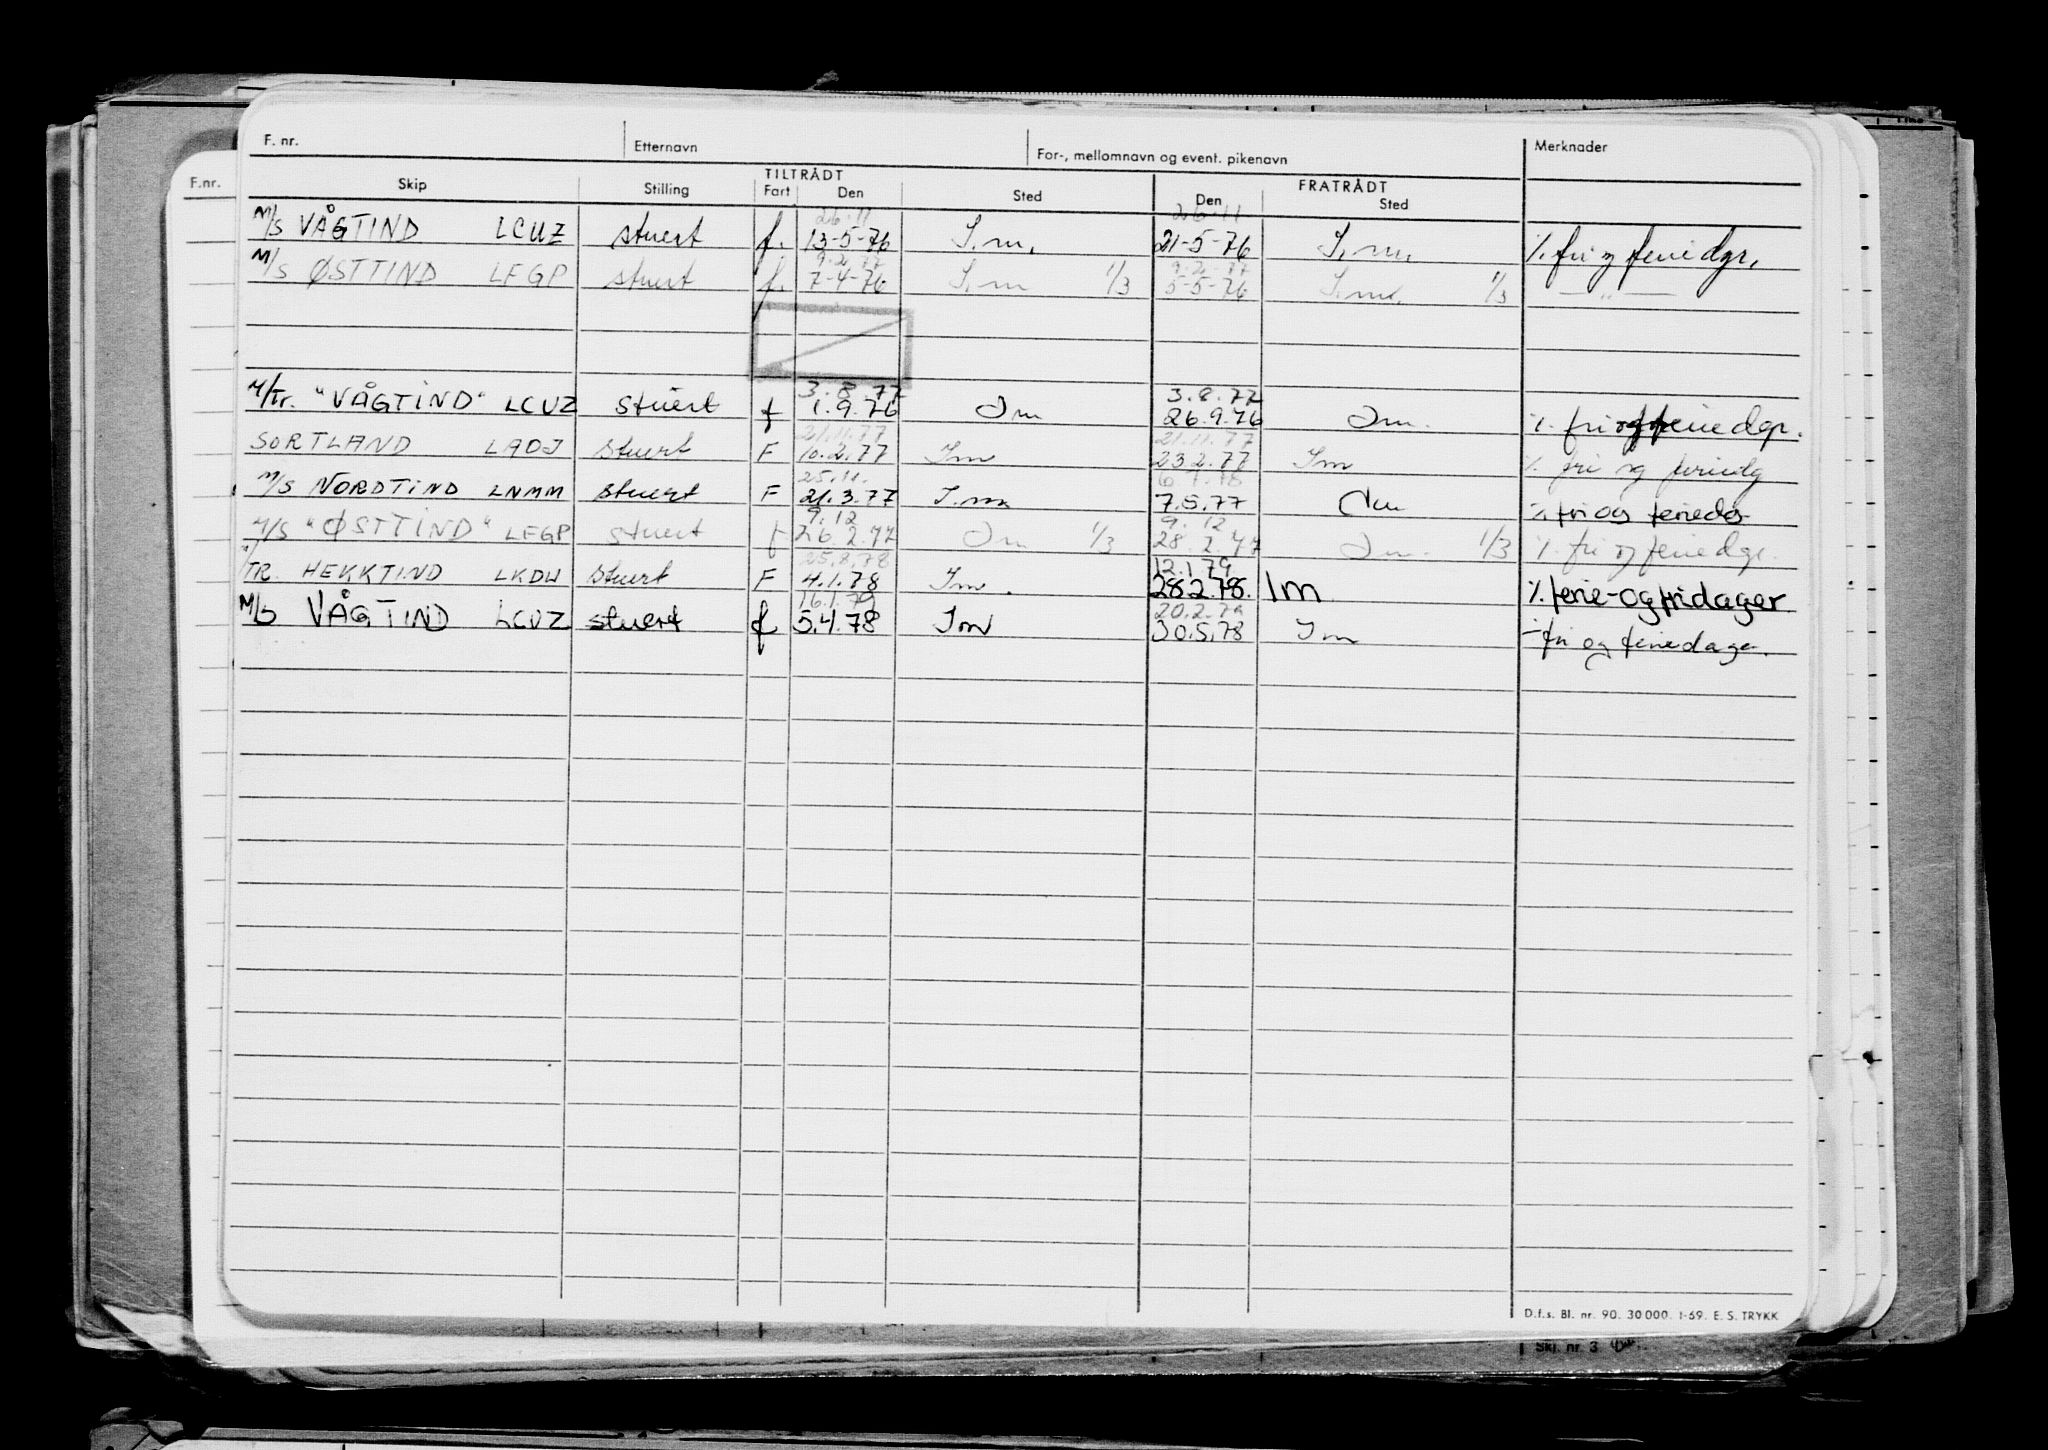 F. nr. Etternavn For-, mellomnavn og event. pikenavn Merknader
F.nr.
TILTRÅDT FRATRÅDT
Skip Stilling Fart Den Sted Den Sted
26.11 26.11
M/S VÅGTIND LCUZ stuert f. 13-5-76 I.m. 21-5-76 I.m. ⁒ fri og feriedgr.
9.2.77 9.2.77
M/S ØSTTIND LEGP stuert f. 7-4-76 I.m 1/3 5-5-76 I.m. 1/3 — „ —
3.8.77 3.8.77
M/Tr. "VÅGTIND" LCUZ stuert f 1.9.76 Im 26.9.76 Im. ⁒ fri og feriedgr.
21.11.77 21.11.77
SORTLAND LADJ stuert F 10.2.77 Im 23.2.77 Im ⁒ fri og feriedg
25.11. 6.1.78
M/S NORDTIND LNMM stuert F 21.3.77 I.m 7.5.77 Im ⁒ fri og feriedg
9.12 9.12
M/S "ØSTTIND" LEGP stuert f 26.2.77 Im 1/3 28.2.77 Im. 1/3 ⁒ fri og feriedgr.
25.8.78 12.1.79
TR. HEKKTIND LKDW stuert F 4.1.78 Im. 28.2.78. Im ⁒ ferie-og fridager
16.1.79 20.2.79
M/S VÅGTIND LCUZ stuert f 5.4.78 Im 30.5.78 Im ÷ fri og feriedager.
D.f.s. Bl. nr. 90. 30000. 1-69. E. S. TRYKK
Skj. nr. 3